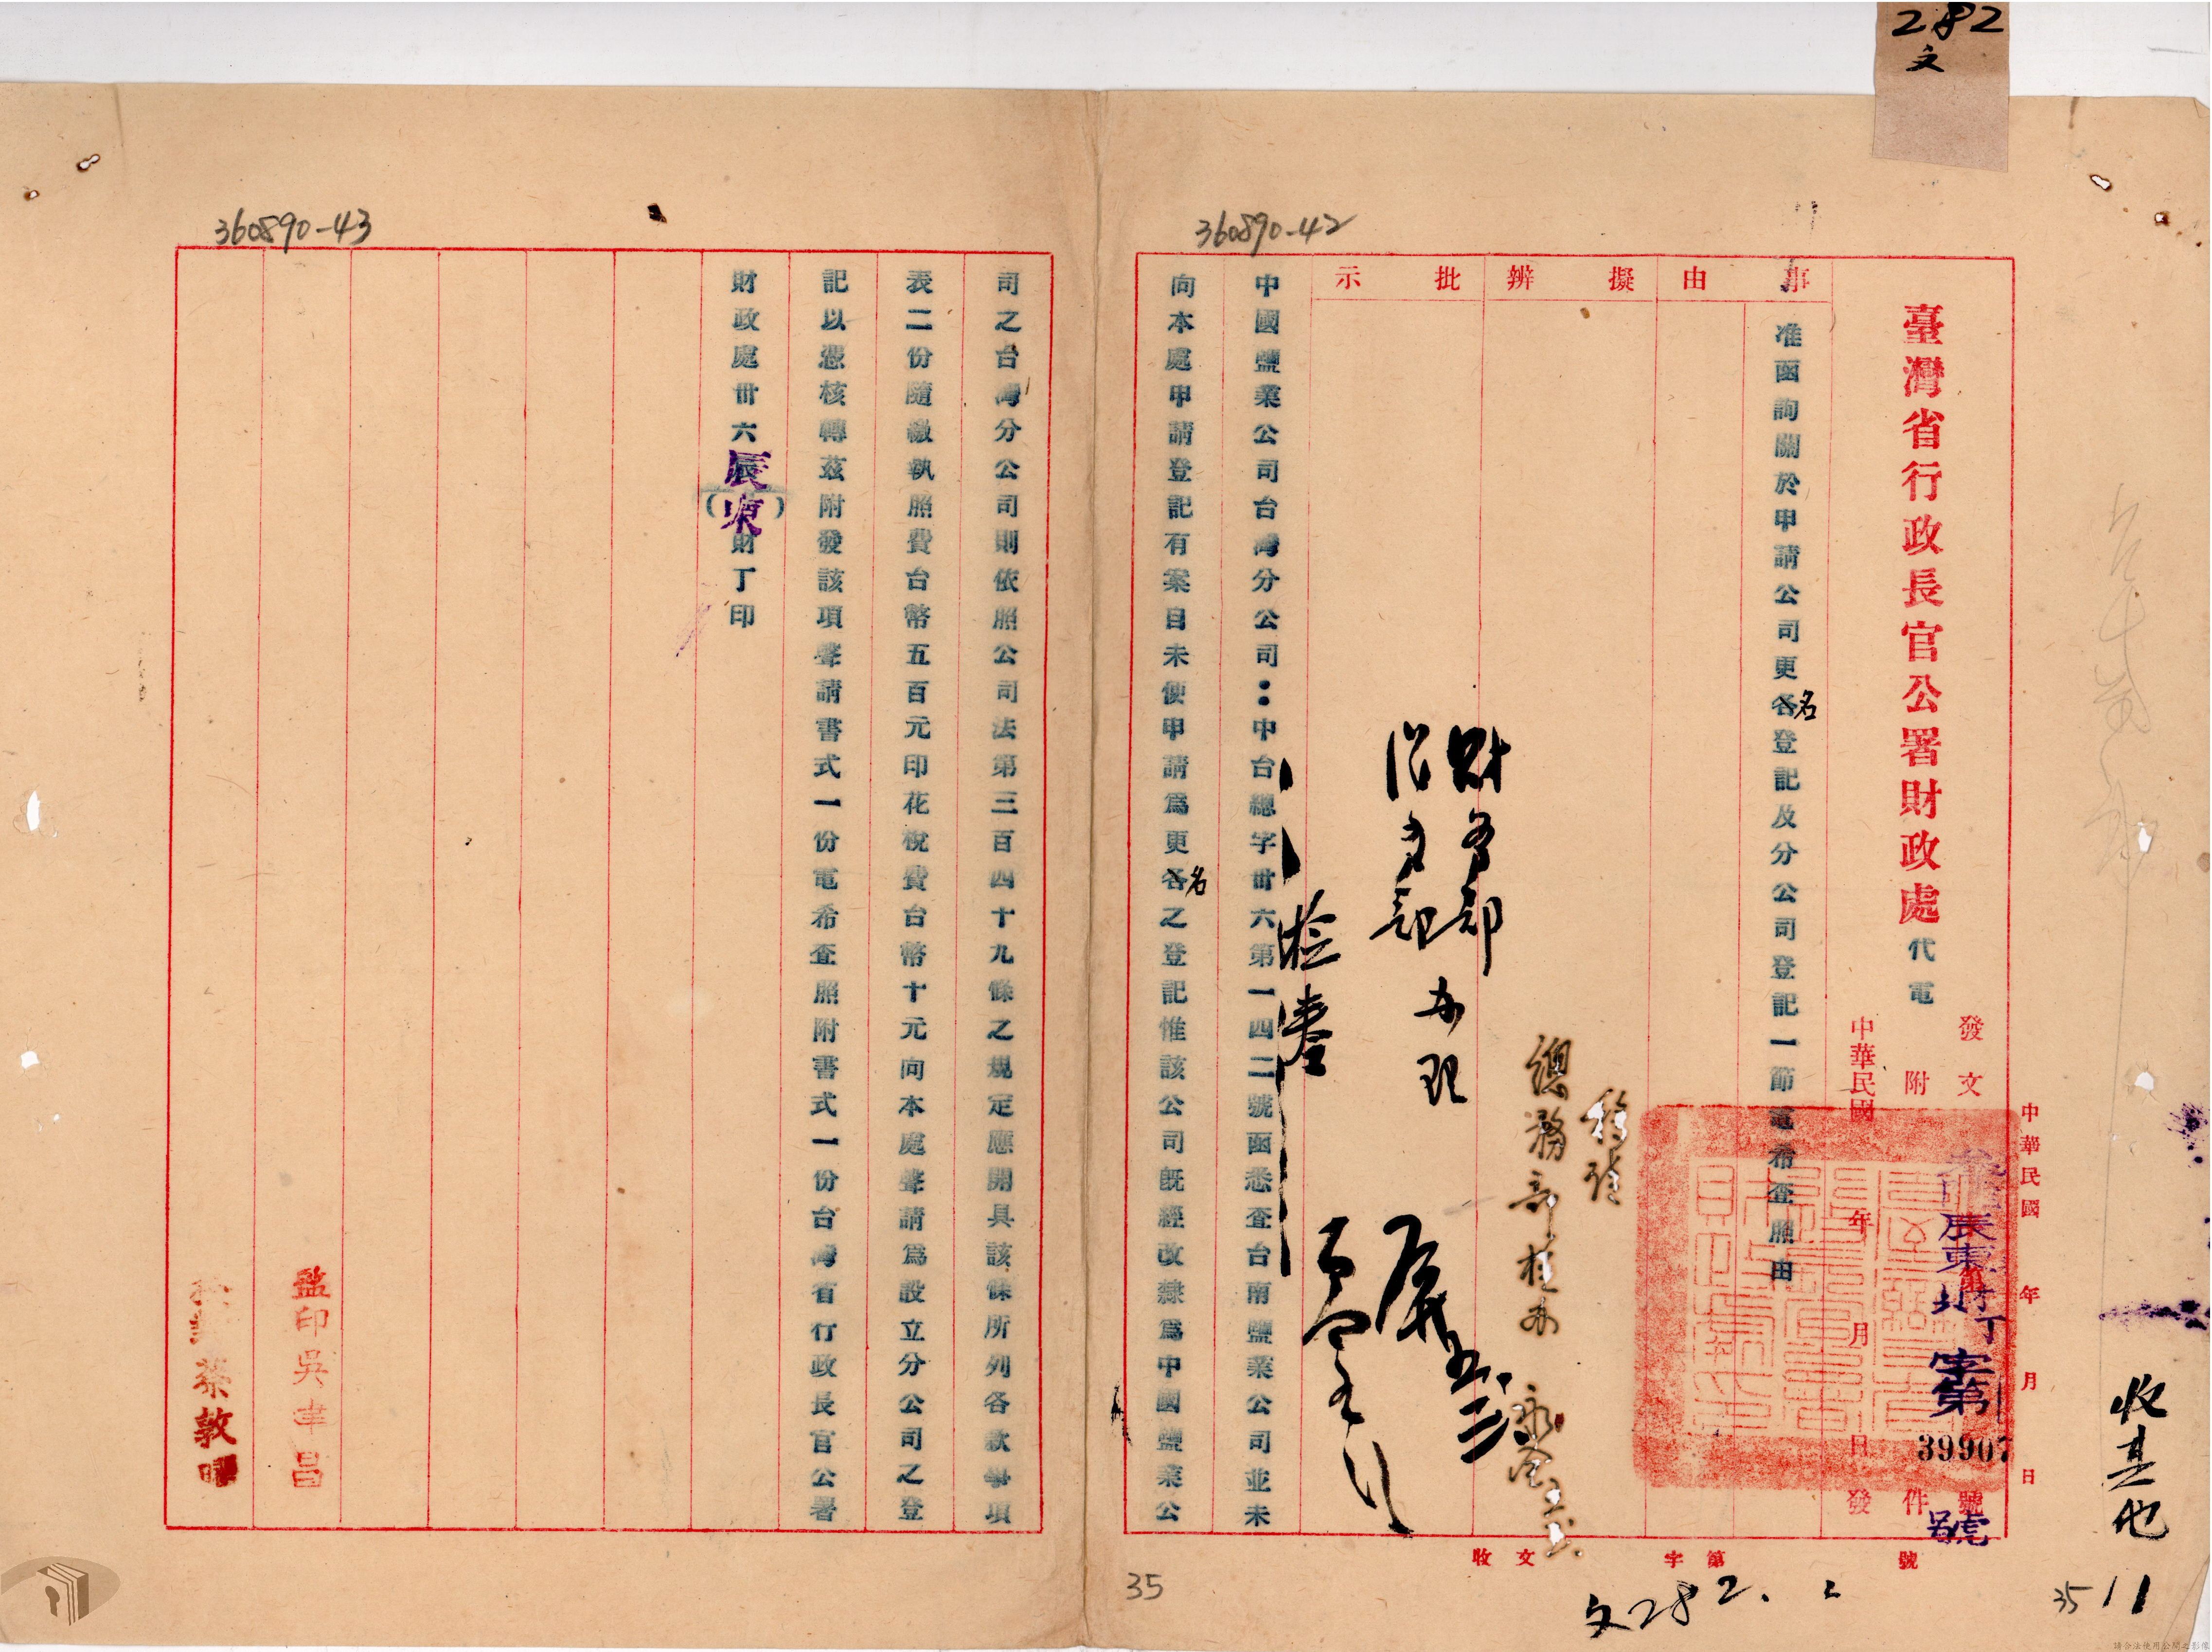 282
文
360890-42
360890-43
臺灣省行政長官公署財政處代電
發文
附
件
號
中華民國
年
月
日
發
中華民國
年
月
日
辰東
丁
字第
39907
號
事由
擬辦
批示
准函詢關於申請公司更各名登記及分公司登記一節電希查照由
總務部
財務部
辦理
中國鹽業公司台灣分公司：中台總字卅六第一四二號函悉查台南鹽業公司並未
向本處申請登記有案自未便申請爲更各名之登記惟該公司既經改隸爲中國鹽業公
司之台灣分公司則依照公司法第三百四十九條之規定應開具該條所列各款事項
表二份隨繳執照費台幣五百元印花稅費台幣十元向本處聲請爲設立分公司之登
記以憑核轉茲附發該項聲請書式一份電希查照附書式一份台灣省行政長官公署
財政處卅六辰（東）財丁印
監印吳聿昌
蔡敦曜
收文
字第
號
文282.
收其他
35
35
11
請合法使用公開之影像